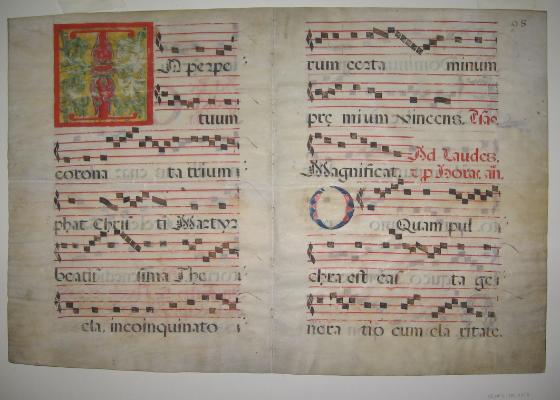 In perpe
tuum
corona ta trium
phat Chris ti Martyr
beatis sima The
cla, incoinquinato
98
rum certa minum
pre mium vincens. Psāo
Ad Laudes,
Magnificat. et p Horas. añ.
O Quam pul
chra est cas ta ge
nera tio cum cla ritate.